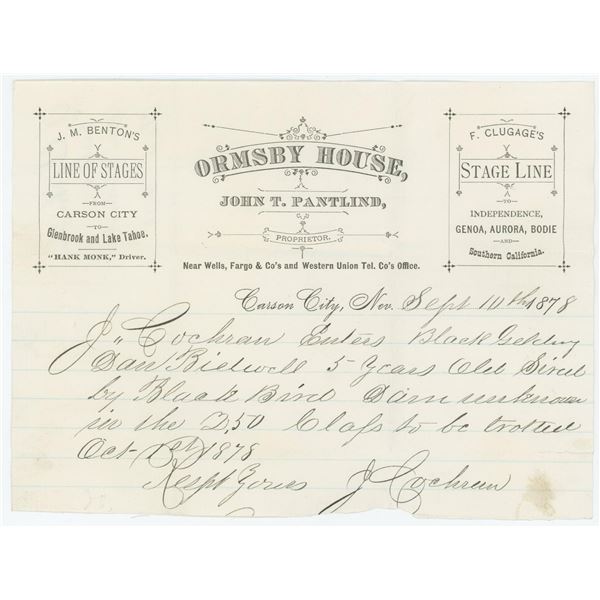 J. M. BENTON'S
LINE OF STAGES
FROM
CARSON CITY
TO
Glenbrook and Lake Tahoe.
"HANK MONK," Driver.
ORMSBY HOUSE,
JOHN T. PANTLIND,
PROPRIETOR.
Near Wells, Fargo & Co's and Western Union Tel. Co's Office.
F. CLUGAGE'S
STAGE LINE
TO
INDEPENDENCE,
GENOA, AURORA, BODIE
AND
Southern California.
Carson City, Nev. Sept 14th 1878
J" Cochran Enters Black Gelding
Dan Bidwell 5 Years Old Sired
by Black Bird Dam unknown
in the 2,50 Class to be troted
Oct 1st 1878
Respt Yours J Cochran